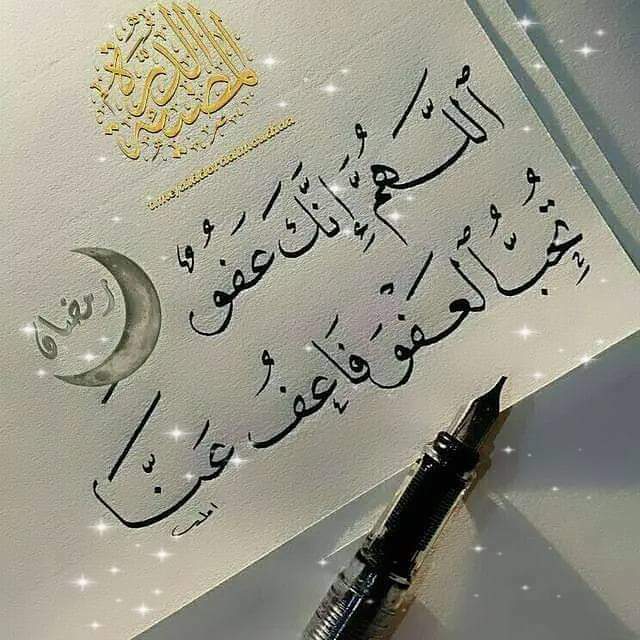 الدرة المضيئة
اللَّهُمَّ إِنَّكَ عَفُوٌّ
تُحِبُّ الْعَفْوَ فَاعْفُ عَنَّا
رمضان